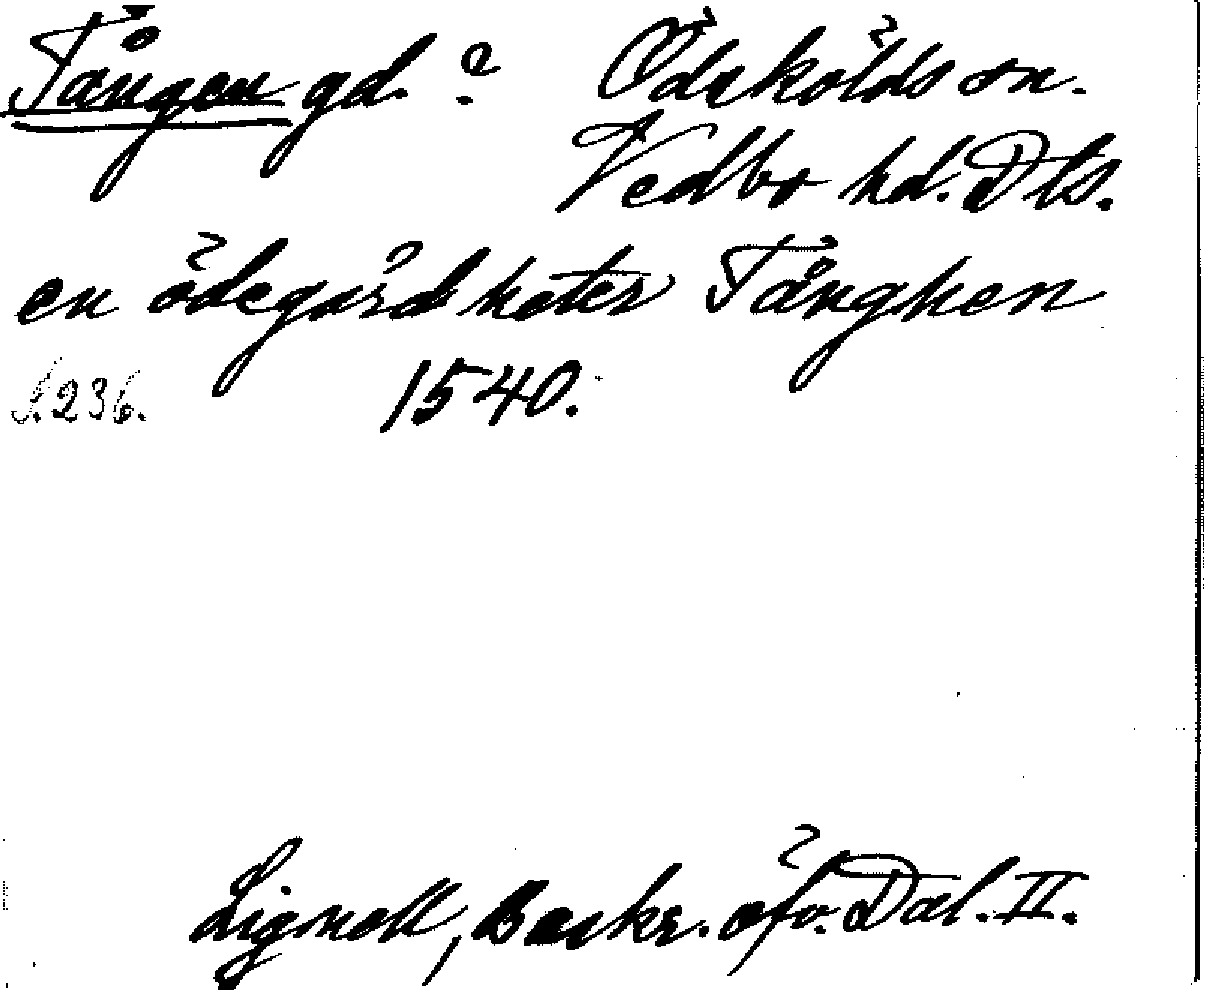 Tången gd.? Ödskölds sn.
Vedbo hd. Dls.
en ödegård heter Tånghen
S. 236. 1540.
Lignell, Beskr. öfv. Dal. II.